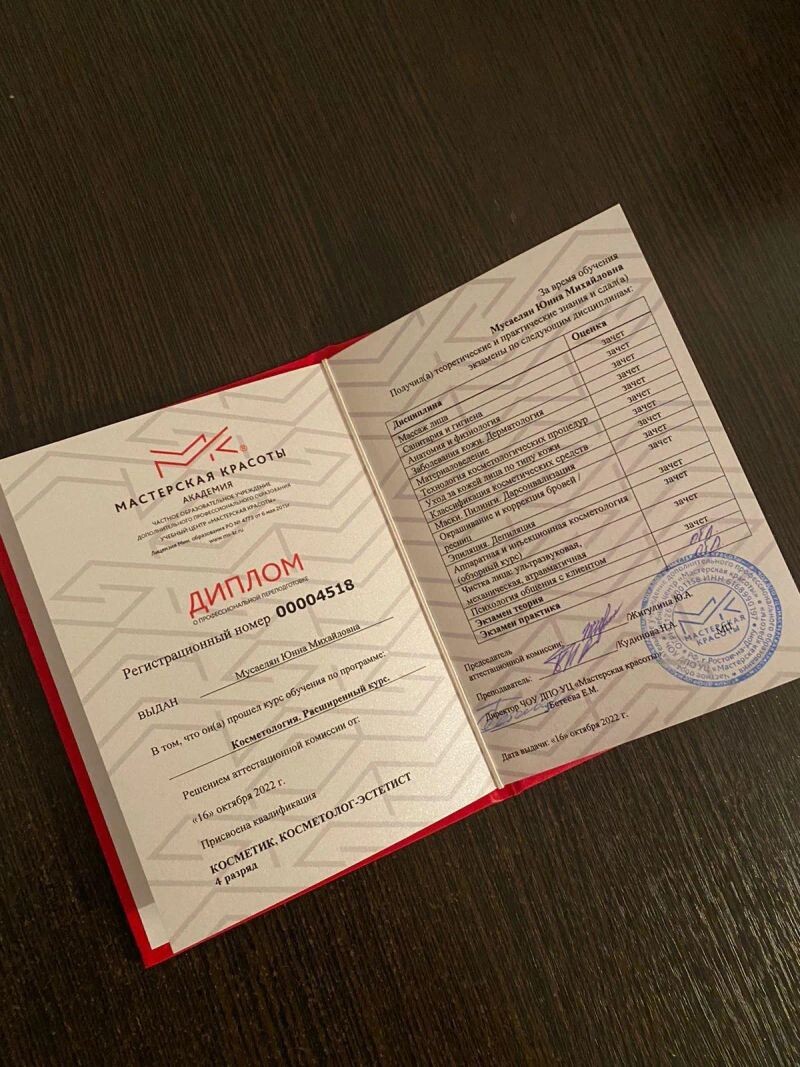 МАСТЕРСКАЯ КРАСОТЫ
АКАДЕМИЯ
ЧАСТНОЕ ОБРАЗОВАТЕЛЬНОЕ УЧРЕЖДЕНИЕ
ДОПОЛНИТЕЛЬНОГО ПРОФЕССИОНАЛЬНОГО ОБРАЗОВАНИЯ
УЧЕБНЫЙ ЦЕНТР «МАСТЕРСКАЯ КРАСОТЫ»
Лицензия Мин. образования РО № 4773 от 6 мая 2015г
www.mk-kr.ru
ДИПЛОМ
О ПРОФЕССИОНАЛЬНОЙ ПЕРЕПОДГОТОВКЕ
Регистрационный номер 00004518
ВЫДАН Мусаелян Юнна Михайловна
В том, что он(а) прошел курс обучения по программе:
Косметология. Расширенный курс.
Решением аттестационной комиссии от:
«16» октября 2022 г.
Присвоена квалификация
КОСМЕТИК, КОСМЕТОЛОГ-ЭСТЕТИСТ
4 разряд
За время обучения
Мусаелян Юнна Михайловна
Получил(а) теоретические и практические знания и сдал(а)
экзамены по следующим дисциплинам:
Дисциплина Оценка
Массаж лица зачет
Санитария и гигиена зачет
Анатомия и физиология зачет
Заболевания кожи. Дерматология зачет
Материаловедение зачет
Технология косметологических процедур зачет
Уход за кожей лица по типу кожи зачет
Классификация косметических средств зачет
Маски. Пилинги. Дарсонвализация зачет
Окрашивание и коррекция бровей /
ресниц зачет
Эпиляция. Депиляция зачет
Аппаратная и инъекционная косметология
(обзорный курс) зачет
Чистка лица: ультразвуковая,
механическая, атравматичная зачет
Психология общения с клиентом зачет
Экзамен теория
Экзамен практика
Председатель
аттестационной комиссии: /Жигулина Ю.А.
Преподаватель: /Кудинова Н.А.
Директор ЧОУ ДПО УЦ «Мастерская красоты»
Бетеева Е.М.
Дата выдачи: «16» октября 2022 г.
МАСТЕРСКАЯ
КРАСОТЫ